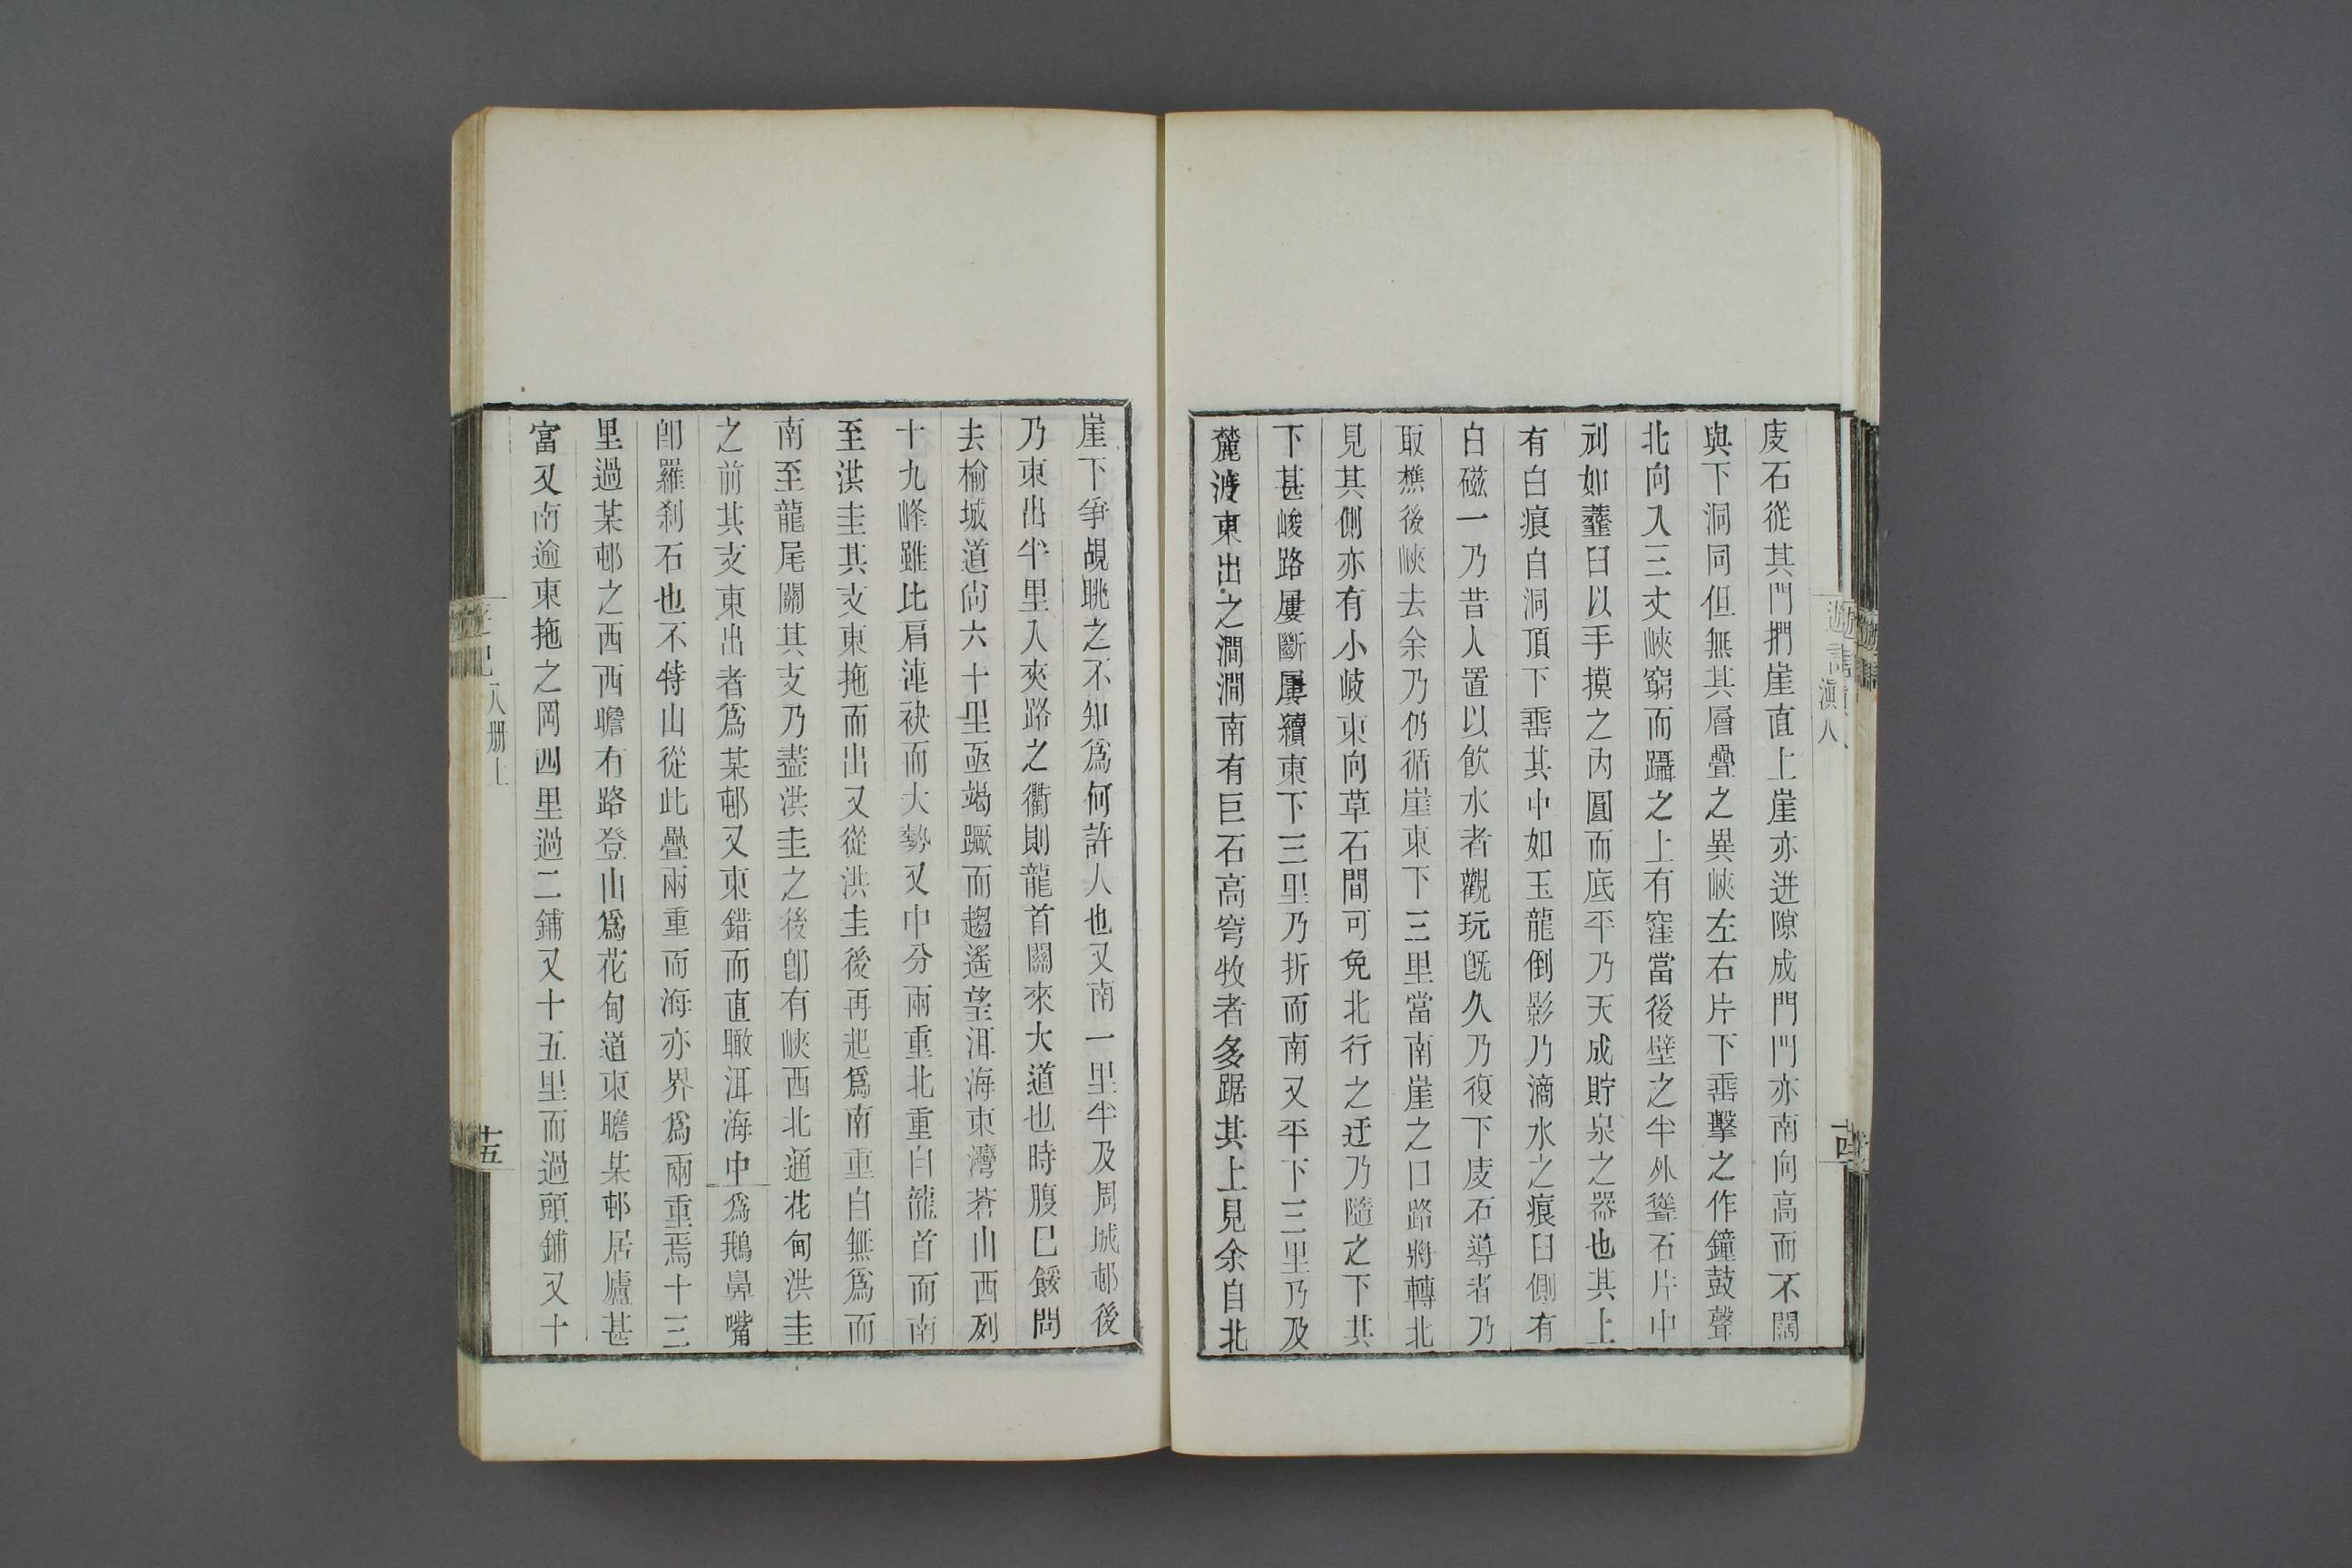 庋石從其門捫崖直上崖亦迸隙成門門亦南向高而不闊
與下洞同但無其層疊之異峽左右片下垂擊之作鐘鼓聲
北向入三丈峽窮而躡之上有窪當後壁之半外聳石片中
刓如虀臼以手摸之內圓而底平乃天成貯泉之器也其上
有白痕自洞頂下垂其中如玉龍倒影乃滴水之痕臼側有
白磁一乃昔人置以飲水者觀玩旣久乃復下庋石導者乃
取樵後峽去余乃仍循崖東下三里當南崖之口路將轉北
見其側亦有小岐東向草石間可免北行之迂乃隨之下其
下甚峻路屢斷屢續東下三里乃折而南又平下三里乃及
麓渡東出之澗澗南有巨石高穹牧者多踞其上見余自北
崖下爭覘眺之不知爲何許人也又南一里半及周城邨後
乃東出半里入夾路之衢則龍首關來大道也時腹巳餒問
去榆城道尙六十里亟竭蹶而趨遙望洱海東灣蒼山西列
十九峰雖比肩連袂而大勢又中分兩重北重白龍首而南
至洪圭其支東拖而出又從洪圭後再起爲南重自無爲而
南至龍尾關其支乃盡洪圭之後卽有峽西北通花甸洪圭
之前其支東出者爲某邨又東錯而直瞰洱海中爲鵝鼻嘴
卽羅刹石也不特山從此疊兩重而海亦界爲兩重焉十三
里過某邨之西西瞻有路登山爲花甸道東瞻某邨居廬甚
富又南逾東拖之岡四里過二鋪又十五里而過頭鋪又十
滇八
十四
八册上
十五